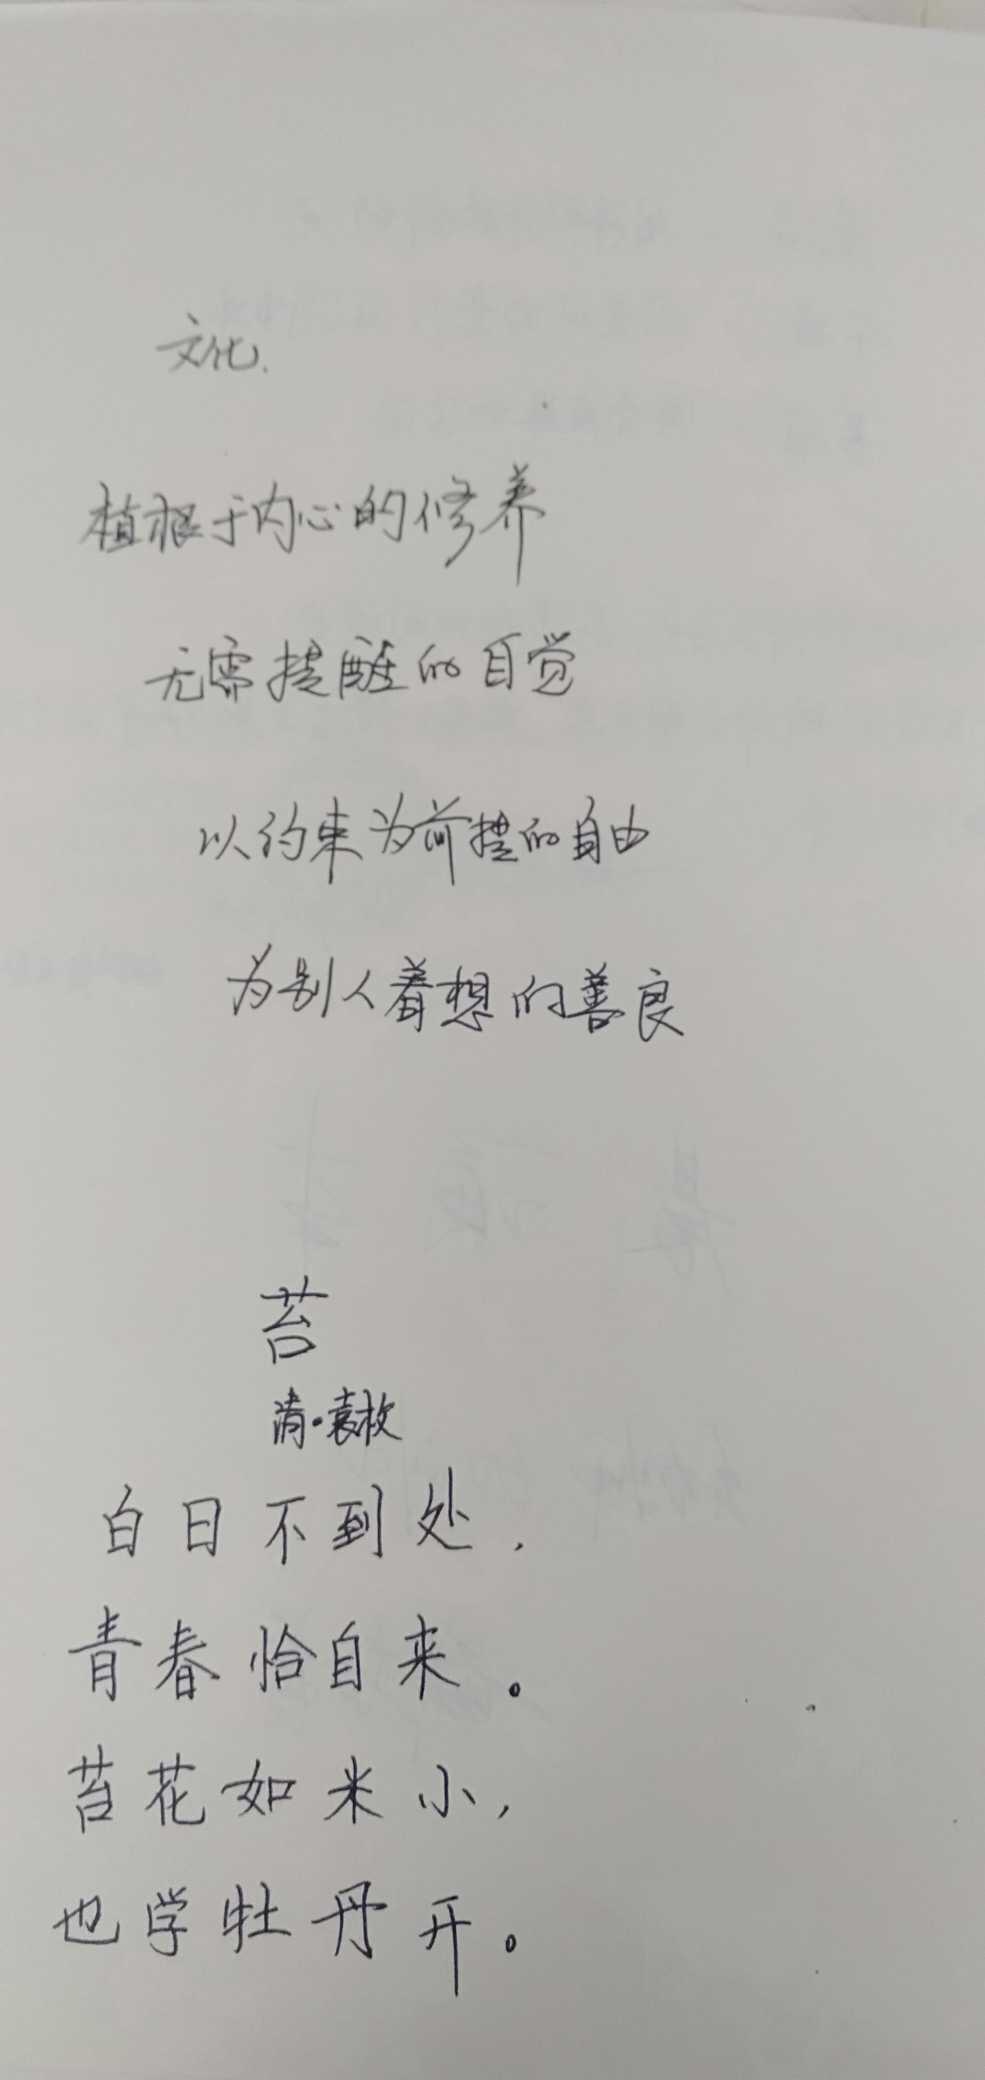 文化.
植根于内心的修养
无需提醒的自觉
以约束为前提的自由
为别人着想的善良
苔
清·袁枚
白日不到处,
青春恰自来。
苔花如米小,
也学牡丹开。